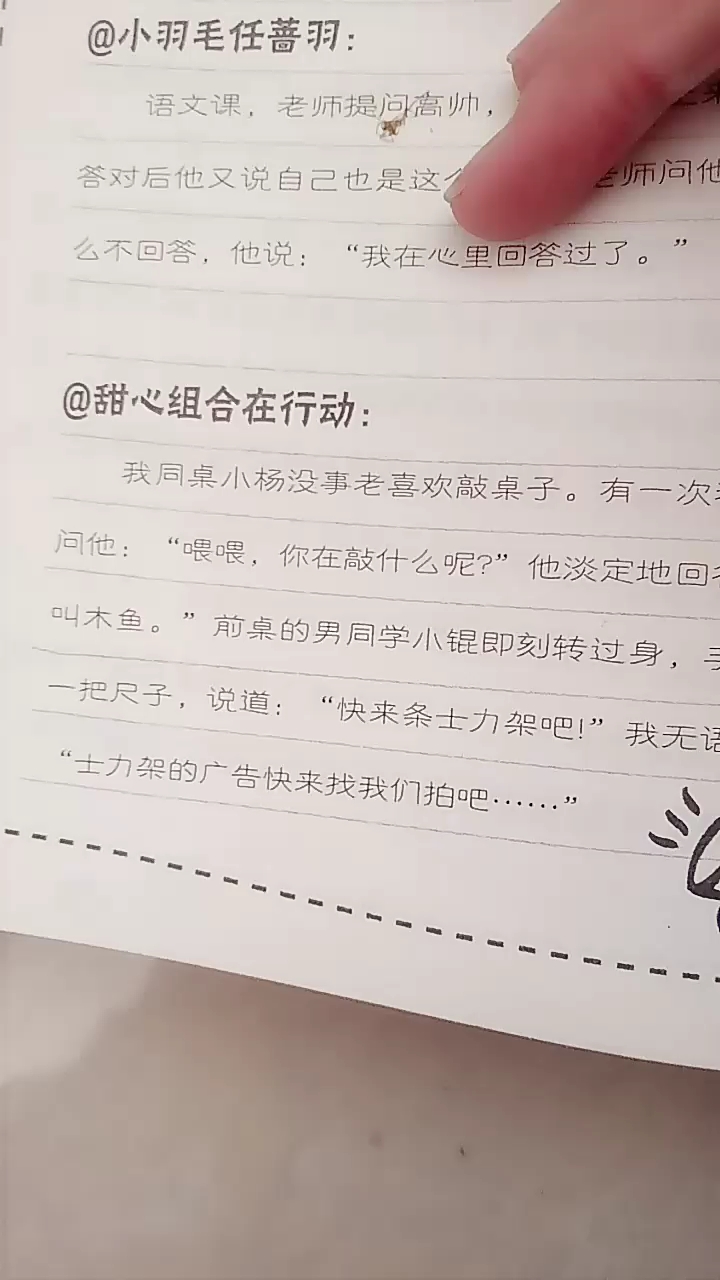 @小羽毛任蔷羽：
语文课，老师提问高帅，
答对后他又说自己也是这 老师问他
么不回答，他说：“我在心里回答过了。”
@甜心组合在行动：
我同桌小杨没事老喜欢敲桌子。有一次
问他：“喂喂，你在敲什么呢？”他淡定地回
叫木鱼。”前桌的男同学小锟即刻转过身，
一把尺子，说道：“快来条士力架吧！”我无语
“士力架的广告快来找我们拍吧……”